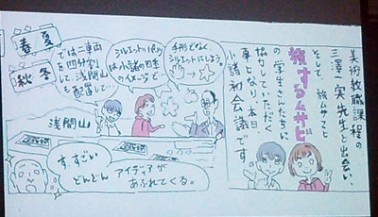 美術教職課程の
三澤一実先生と出会い、
そして、旅ムサビと
旅するムサビ
の学生さんたちに
協力していただく
事となり、本日
小諸初会議です。
手形でなく
シルエットにしましょう。
シルエットの代わり
は小諸の日本
のイメージで
では二車両
を四分割
して、浅間山
も配置して…
春 夏
秋 冬
浅間山
すすごい
どんどん
アイディアが
あふれてくる。